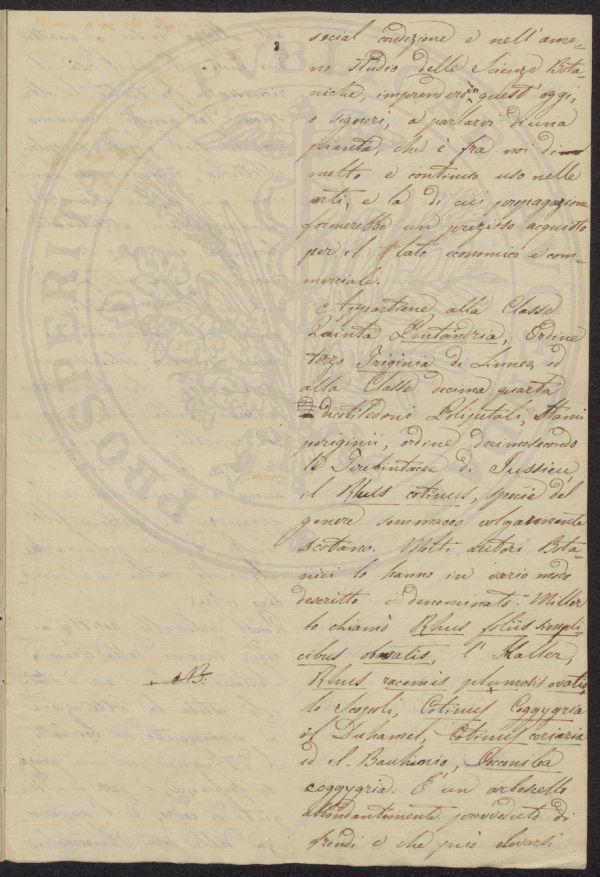 social condizione e nell'ame-
no studio delle Scienze Bota-
niche, imprendero in quest'oggi,
o signori, a parlarvi di una
pianta, che è fra noi di
molto e continuo uso nelle
arti, e la di cui propagazione
formerebbe un prezioso acquisto
per il lato economico e com-
merciale.
Appartiene alla Classe
Quinta Pentandria, Ordine
terzo Triginia di Linneo, ed
alla Classe decima quarta
dicotiledoni Polipetali, Stami
periginii, ordine decimosecondo
Terebintacee di Jussieu,
il Rhus cotinus, specie del
genere sommacco volgarmente
scotano. Molti autori Bota-
nici lo hanno in vario modo
descritto e denominato. Miller
lo chiamò Rhus foliis simpli-
cibus obovatis, l'Haller,
Rhus racemis plumosis ovatis
lo Scopoli, Cotinus Coggygria
il Duhamel, Cotinus coriaria
ed il Bauhinio, Cocconilea
coggygria. È un arboscello
abbondantemente provveduto di
frondi e che può elevarsi
NB.
PROSPERITÀ